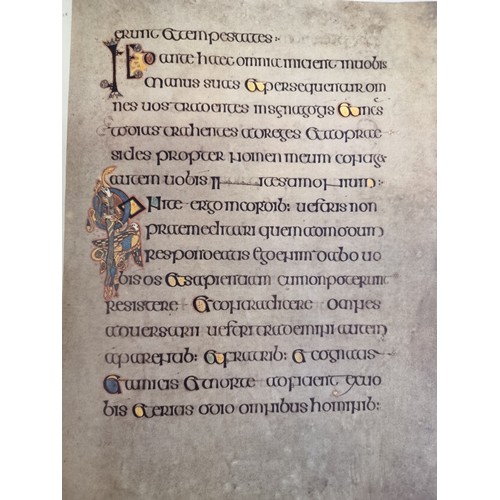 erunt & tempestates:
Sed ante haec omnia inicient inuobis
manus suas & persequentur om
nes uos tradentes insinagogis &
todias trahentes adreges & adprae
sides propter nomen meum conting
autem uobis in testimonium
Ponite ergo incordib: uestris non
praemeditari quemadmodum
respondeatis ego enim dabo uo
bis os & sapientiam cui non poterunt
resistere & contradicere omnes
aduersarii uestri trademini autem
aparentib: & fratrib: & cognatis
& amicis & morte adficient exuo
bis & eritis odio omnibus hominib: